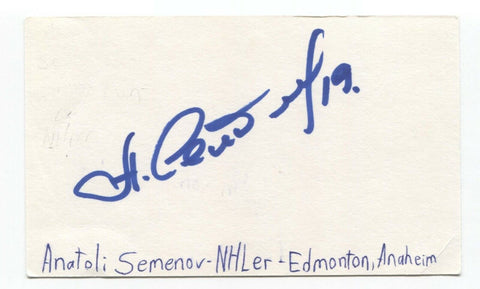 A. Semenov 19.
Anatoli Semenov-NHLer-Edmonton, Anaheim